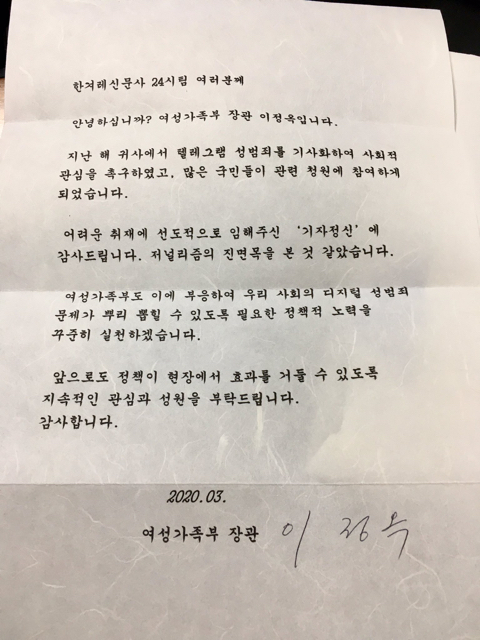 한겨레신문사 24시팀 여러분께
안녕하십니까? 여성가족부 장관 이정옥입니다.
지난 해 귀사에서 텔레그램 성범죄를 기사화하여 사회적
관심을 촉구하였고, 많은 국민들이 관련 청원에 참여하게
되었습니다.
어려운 취재에 선도적으로 임해주신 '기자정신'에
감사드립니다. 저널리즘의 진면목을 본 것 같았습니다.
여성가족부도 이에 부응하여 우리 사회의 디지털 성범죄
문제가 뿌리 뽑힐 수 있도록 필요한 정책적 노력을
꾸준히 실천하겠습니다.
앞으로도 정책이 현장에서 효과를 거둘 수 있도록
지속적인 관심과 성원을 부탁드립니다.
감사합니다.
2020.03.
여성가족부 장관 이 정 옥